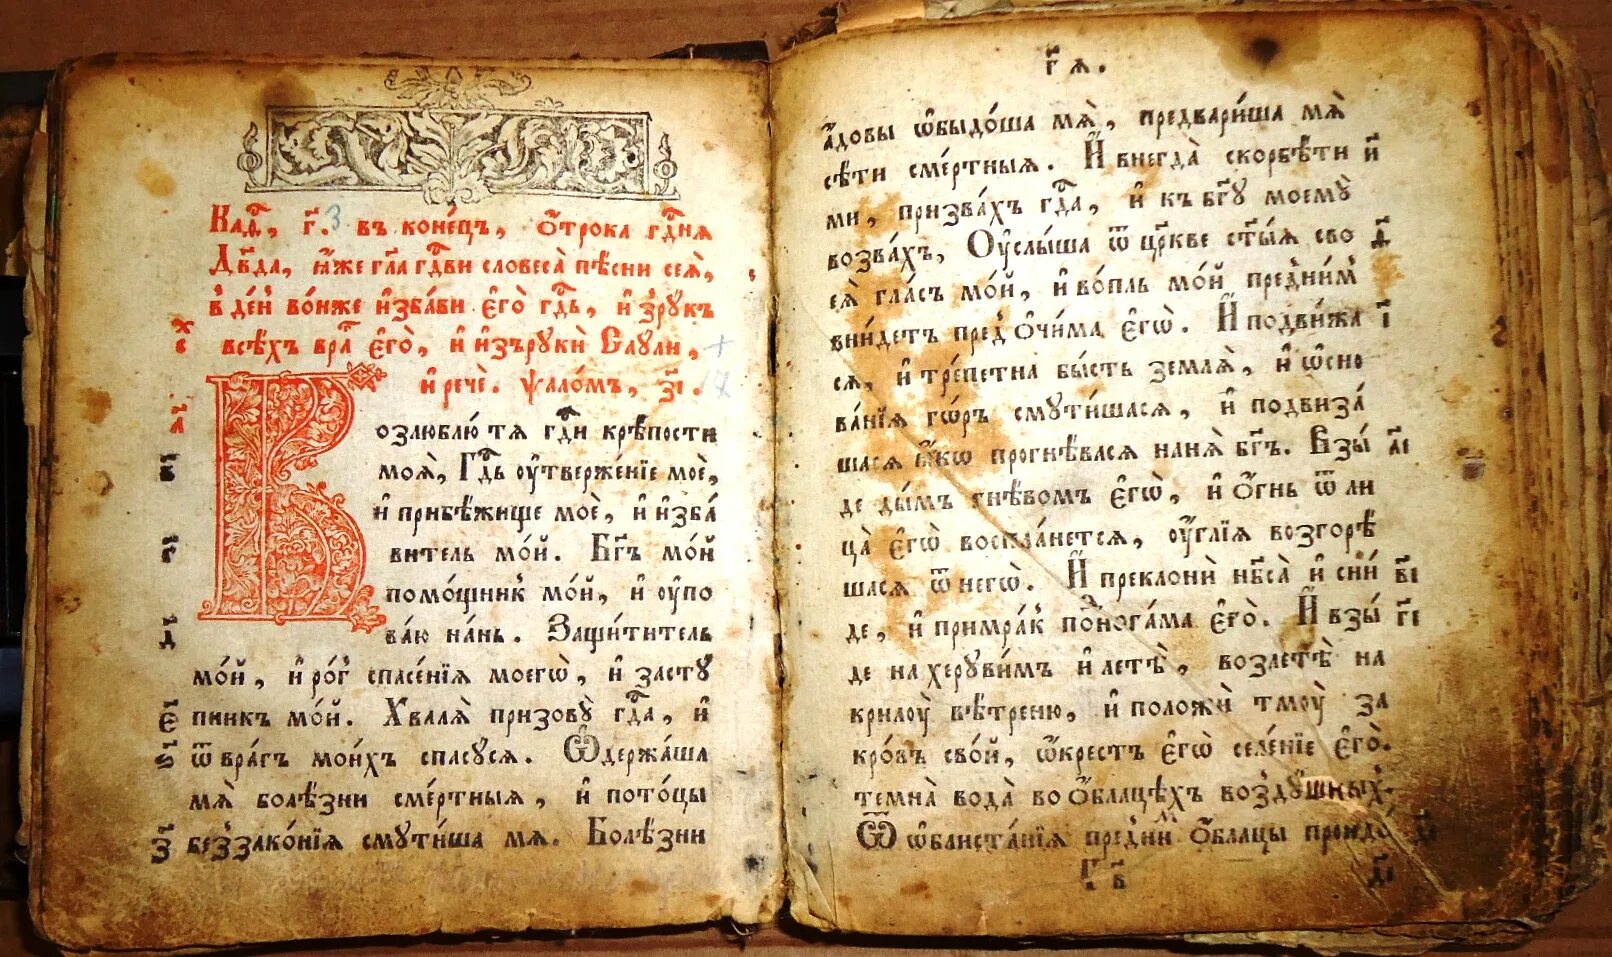 Каѳ҃, г҃. 3 въ коне́цъ, ѻ҆́трока гд҇ня
Дв҃да, ꙗ҆̀же гл҃а гд҇ви словеса̀ пѣ́сни сея̀,
в̾ де́н̾ во́нже и҆зба́ви є҆го̀ гд҇ь, и҆ з̾рꙋ́къ
всѣ́хъ вра҃г є҆го̀, и҆ и҆зърꙋкѝ Саꙋли,
и҆ речѐ. ѱало́мъ, з҃і. 17
а҃ Возлюблю́ тѧ гд҇и крѣ́пости
в҃ моѧ̀, Гд҇ь ᲂу҆твержéнїе моѐ,
и҆ прибѣ́жище моѐ, и҆ и҆зба́
г҃ витель мо́й. Бг҃ъ мо́й
помо́щник̾ мо́й, и҆ ᲂу҆по
д҃ ва́ю на́нь. Защи́титель
мо́й, и҆ ро́г̾ спасе́нїѧ моегѡ̀, и҆ застꙋ́
є҃ пникъ мо́й. Хвалѧ̀ призовꙋ̀ гд҇а, и҆
ѕ҃ ѿ вра̑гъ мои́хъ спасꙋ́сѧ. Ѽдержа́ша
мѧ̀ болѣ́зни сме́ртныѧ, и҆ пото́цы
з҃ без̾зако́нїѧ смꙋти́ша мѧ. Болѣ́зни
г҃ ѧ.
а҆́довы ѡ҆быдо́ша мѧ̀, предвари́ша мѧ̀
сѣ́ти сме́ртныѧ. И҆ внегда̀ скорбѣ́ти и҃
ми, призва́хъ гд҇а, и҆ къ бг҃ꙋ моемꙋ̀
возва́хъ, Оу҆слы́ша ѿ цр҃кве ст҃ы́ѧ сво д҃
еѧ̀ гла́съ мо́й, и҆ во́пль мо́й пред̾ни́м̾
вни́идетъ пред̾ ѻ҆чи́ма є҆гѡ̀. И҆ подви́жа і҃
сѧ, и҆ тре́петна бы́сть землѧ̀, и҆ ѡ҆сно
ва́нїѧ го́ръ смꙋти́шасѧ, и҆ подвиза́
шасѧ ꙗ҆́кѡ прогнѣ́васѧ нанѧ̀ бг҃ъ. Взы́ а҃і
де ды́мъ гнѣ́вомъ є҆гѡ̀, и҆ ѻ҆́гнь ѿ ли
ца̀ є҆гѡ̀ воспла́нетсѧ, ᲂу҆́глїѧ возгорѣ́
шасѧ ѿ негѡ̀. И҆ преклонѝ нб҃са̀ и҆ сни́ в҃і
де, и҆ примра́к̾ под̾ нога́ма є҆го̀. И҆ взы́ г҃і
де на херꙋви́мъ и҆ летѣ̀, возлетѣ̀ на
крилꙋ̀ вѣ́треню, и҆ положѝ тмꙋ̀ за
кро́въ сво́й, ѡ҆́крестъ є҆гѡ̀ селе́нїе є҆го̀.
темна̀ вода̀ во ѻ҆́блацѣхъ воздꙋ́шных̾.
Ѿ ѡ҆блиста́нїѧ пред̾ни́ ѻ҆́блацы проидо́
г҃ в҃ д҃і